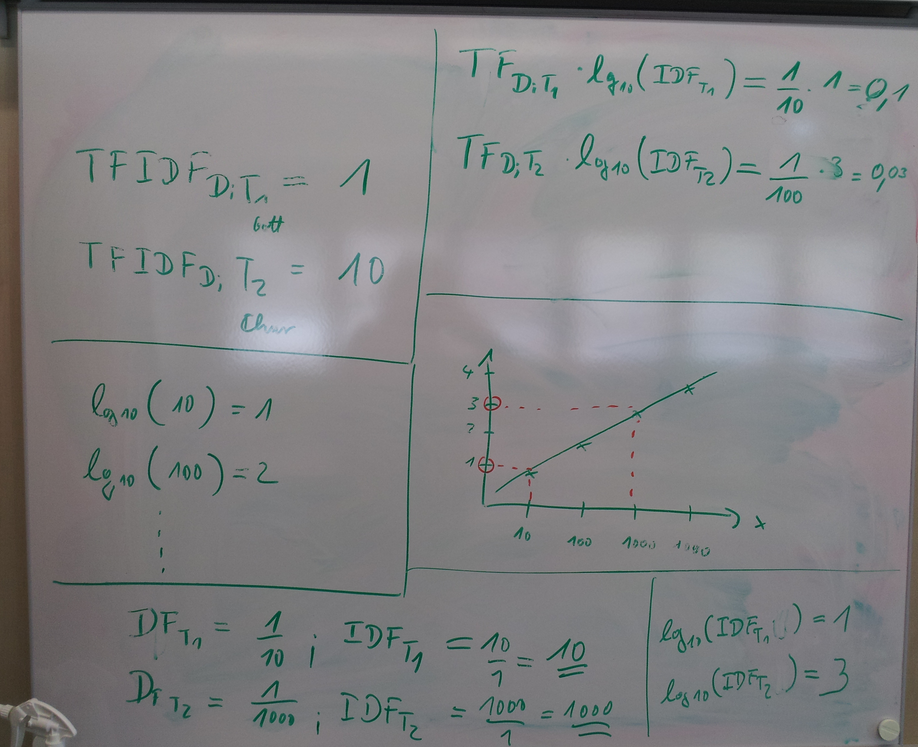 TFIDF_{D_i T_1} = 1
Gott
TFIDF_{D_i T_2} = 10
TF_{D_i T_1} · log_{10}(IDF_{T_1}) = 1/10 · 1 = 0,1
TF_{D_i T_2} · log_{10}(IDF_{T_2}) = 1/100 · 3 = 0,03
log_{10}(10) = 1
log_{10}(100) = 2
4
3
2
1
10 100 1000 x
DF_{T_1} = 1/10 ; IDF_{T_1} = 10/1 = 10
DF_{T_2} = 1/1000 ; IDF_{T_2} = 1000/1 = 1000
log_{10}(IDF_{T_1}) = 1
log_{10}(IDF_{T_2}) = 3